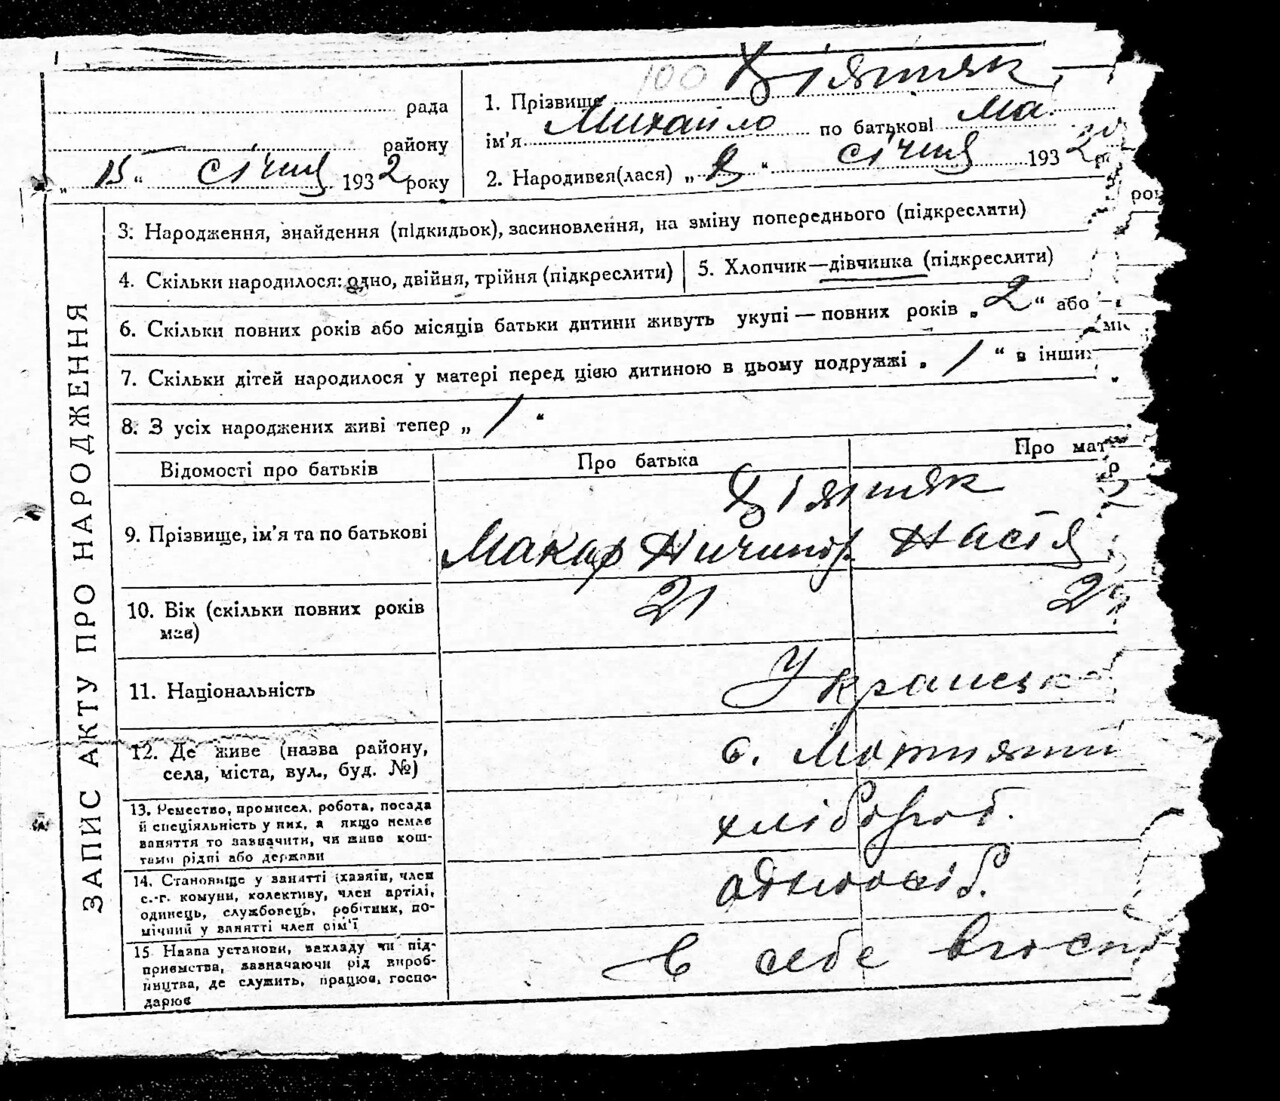 100
рада
1. Прізвище
ім'я Михайло по батькові Ма
району
„ 15 “ січня 1932 року
2. Народився(лася) „ “ січня 1932
рок
ЗАПИС АКТУ ПРО НАРОДЖЕННЯ
3. Народження, знайдення (підкидьок), засиновлення, на зміну попереднього (підкреслити)
4. Скільки народилося: одно, двійня, трійня (підкреслити)
5. Хлопчик—дівчинка (підкреслити)
6. Скільки повних років або місяців батьки дитини живуть укупі — повних років „ 2 “ або
міс
7. Скільки дітей народилося у матері перед цією дитиною в цьому подружжі „ 1 “ в інших
8. З усіх народжених живі тепер „ 1 “
Відомості про батьків
Про батька
Про мат
9. Прізвище, ім'я та по батькові
Макар Ничипор Настя
10. Вік (скільки повних років мав)
21
11. Національність
Українськ
12. Де живе (назва району, села, міста, вул., буд. №)
с.
13. Ремество, промисел, робота, посада й спеціяльність у них, а якщо немає заняття то зазначити, чи живе коштами рідні або держави
хлібороб.
14. Становище у занятті (хазяїн, член с.-г. комуни, колективу, член артілі, одинець, службовець, робітник, помічний у занятті член сім'ї
одноосіб.
15. Назва установи, закладу чи підприємства, зазначаючи рід виробництва, де служить, працює, господарює
в себе в госп